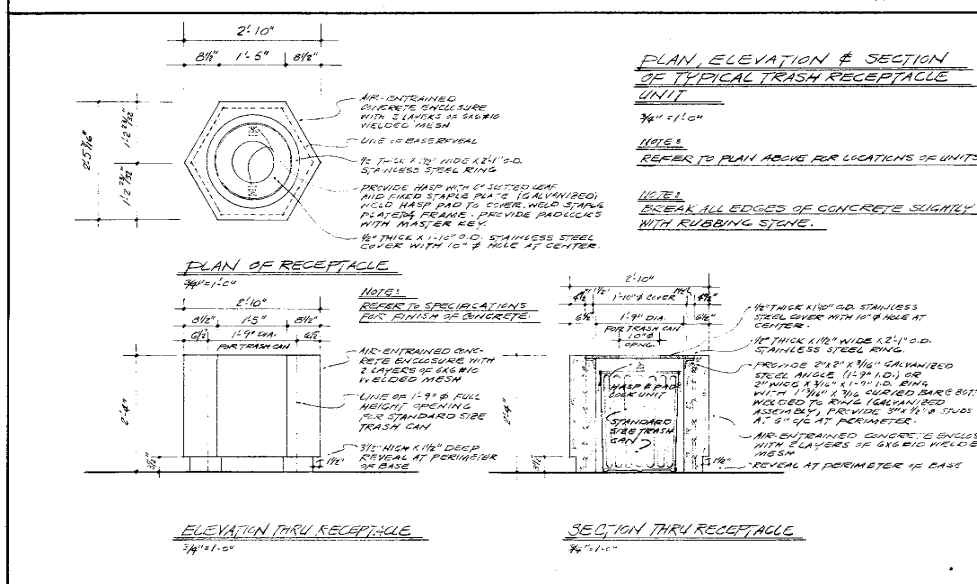 2'-10"
8½" 1'-5" 8½"
2'-5 7/16"
1'-2 23/32"
1'-2 23/32"
AIR-ENTRAINED
CONCRETE ENCLOSURE
WITH 2 LAYERS OF 6X6 #10
WELDED MESH
LINE OF BASE REVEAL
½" THICK X 1½" WIDE X 2'-1" O.D.
STAINLESS STEEL RING
PROVIDE HASP WITH 6" SLOTTED LEAF
AND FIXED STAPLE PLATE (GALVANIZED)
WELD HASP PAD TO COVER. WELD STAPLE
PLATE FRAME. PROVIDE PADLOCKS
WITH MASTER KEY.
½" THICK X 1'-10" O.D. STAINLESS STEEL
COVER WITH 10" Ø HOLE AT CENTER.
PLAN OF RECEPTACLE
¾"=1'-0"
PLAN, ELEVATION & SECTION
OF TYPICAL TRASH RECEPTACLE
UNIT
¾"=1'-0"
NOTE:
REFER TO PLAN ABOVE FOR LOCATIONS OF UNITS
NOTE:
BREAK ALL EDGES OF CONCRETE SLIGHTLY
WITH RUBBING STONE.
NOTE:
REFER TO SPECIFICATIONS
FOR FINISH OF CONCRETE.
2'-10"
8½" 1'-5" 8½"
6½" 1'-9" DIA. 6½"
FOR TRASH CAN
2'-4"
3½"
1½"
AIR-ENTRAINED CONC-
RETE ENCLOSURE WITH
2 LAYERS OF 6X6 #10
WELDED MESH
LINE OF 1'-9" Ø FULL
HEIGHT OPENING
FOR STANDARD SIZE
TRASH CAN
3½" HIGH X 1½" DEEP
REVEAL AT PERIMETER
OF BASE
ELEVATION THRU RECEPTACLE
¾"=1'-0"
2'-10"
4½" 1½" 1'-10" Ø COVER 1½" 4½"
6½" 1'-9" DIA. 6½"
FOR TRASH CAN
10" Ø
OPNG.
HASP & PAD-
LOCK UNIT
STANDARD
SIZE TRASH
CAN
2'-4"
3½"
1½"
½" THICK X 1'-10" O.D. STAINLESS
STEEL COVER WITH 10" Ø HOLE AT
CENTER.
½" THICK X 1½" WIDE X 2'-1" O.D.
STAINLESS STEEL RING.
PROVIDE 2"X2" X 3/16" GALVANIZED
STEEL ANGLE (1'-9" I.D.) OR
2" WIDE X 3/16" X 1'-9" I.D. RING
WITH 1 13/16" X 3/16 CURVED BARE
WELDED TO RING (GALVANIZED
ASSEMBLY, PROVIDE 3"X½" Ø STUDS
AT 6" C/C AT PERIMETER.
AIR-ENTRAINED CONCRETE ENCLOS
WITH 2 LAYERS OF 6X6 #10 WELDED
MESH
REVEAL AT PERIMETER OF BASE
SECTION THRU RECEPTACLE
¾"=1'-0"